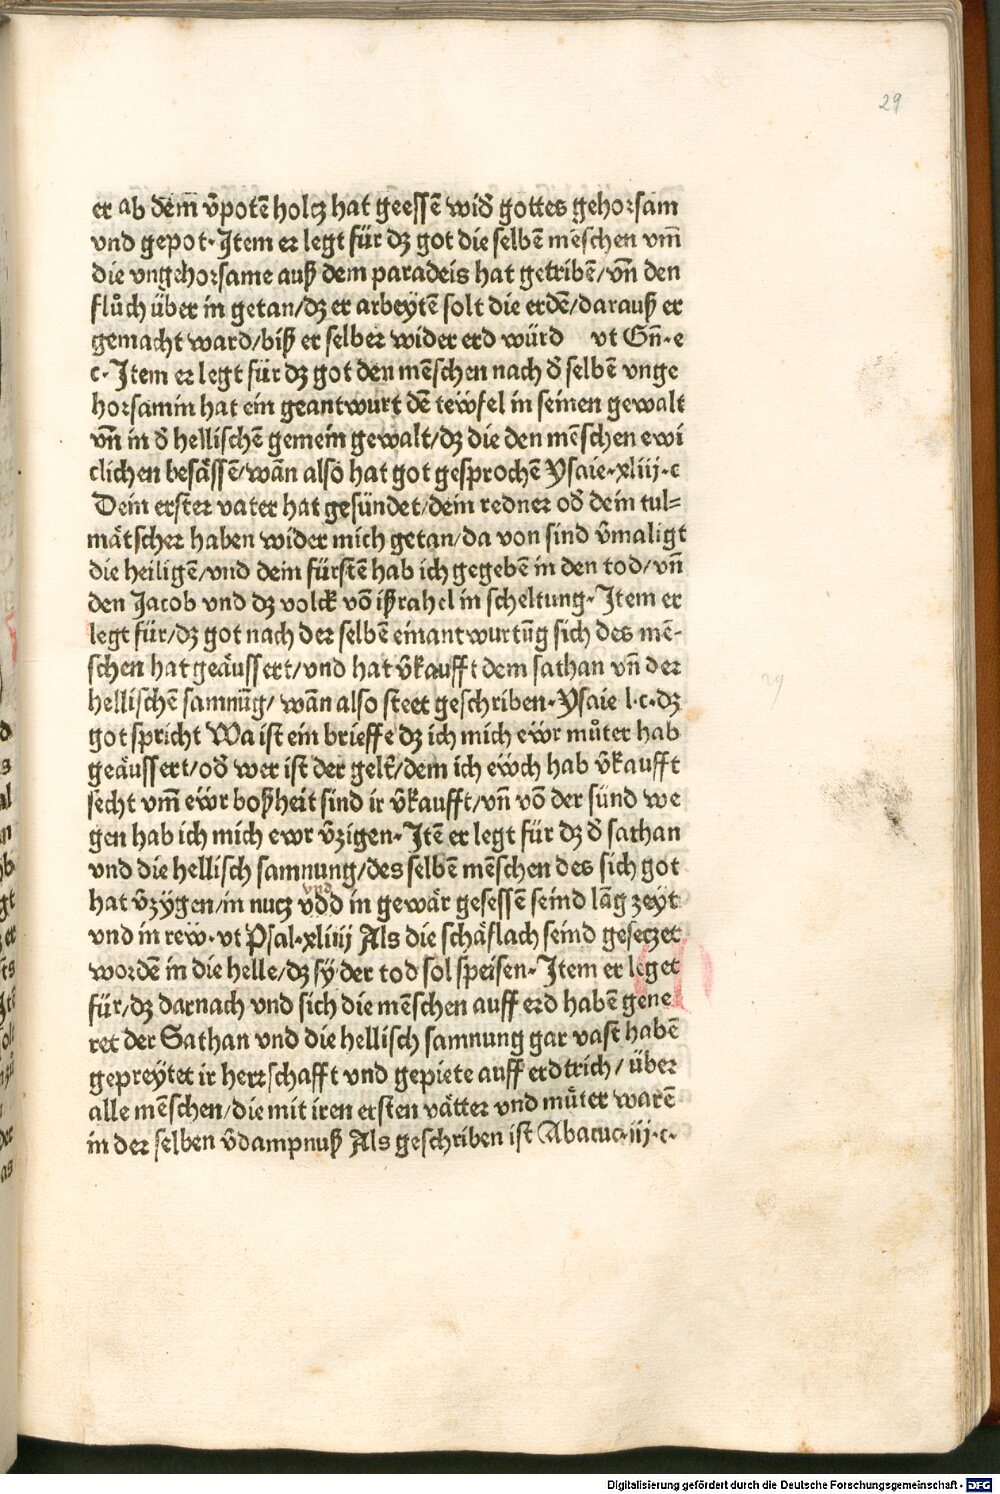 29
er ab dem̄ v̄potē holcz hat geessē wid̄ gottes gehorsam
vnd gepot. Item er legt für dz got die selbē mēschen vm̄
die vngehorsame auß dem paradeis hat getribē/vn̄ den
flůch über in getan/dz er arbeytē solt die erdē/darauß er
gemacht ward/biß er selber wider erd würd vt Gn̄. e
c. Item er legt für dz got den mēschen nach d̄ selbē vnge
horsamin hat ein geantwurt dē tewfel in seinen gewalt
vn̄ in d̄ hellischē gemein gewalt/dz die den mēschen ewi
clichen besässē/wān also hat got gesprochē Ysaie. xliij. c
Dein erster vater hat gesündet/dein redner od̄ dein tul=
mätscher haben wider mich getan/da von sind v̄maligt
die heiligē/vnd dein fürstē hab ich gegebē in den tod/vn̄
den Jacob vnd dz volck vō ißrahel in scheltung. Item er
legt für/dz got nach der selbē einantwurtūg sich des mē-
schen hat geäussert/vnd hat v̄kaufft dem sathan vn̄ der
hellischē samnūg/ wān also steet geschriben. Ysaie l. c. dz
got spricht Wa ist ein brieffe dz ich mich ewr můter hab
geäussert/od̄ wer ist der gelt̄/dem ich ewch hab v̄kaufft
secht vm̄ ewr boßheit sind ir v̄kaufft/vn̄ vō der sünd we
gen hab ich mich ewr v̄zigen. Itē er legt für dz d̄ sathan
vnd die hellisch samnung/des selbē mēschen des sich got
vnd
hat v̄zygen/in nucz vd̄d in gewär gesessē seind lāg zeyt
vnd in rew. vt Psal. xliiij Als die schäflach seind geseczet
wordē in die helle/dz sy der tod sol speisen. Item er leget
für/dz darnach vnd sich die mēschen auff erd habē gene
ret der Sathan vnd die hellisch samnung gar vast habē
gepreytet ir herrschafft vnd gepiete auff erdtrich/ über
alle mēschen/die mit iren ersten vätter vnd müter warē
in der selben v̄dampnuß Als geschriben ist Abacuc. iij. c.
29
Digitalisierung gefördert durch die Deutsche Forschungsgemeinschaft - DFG